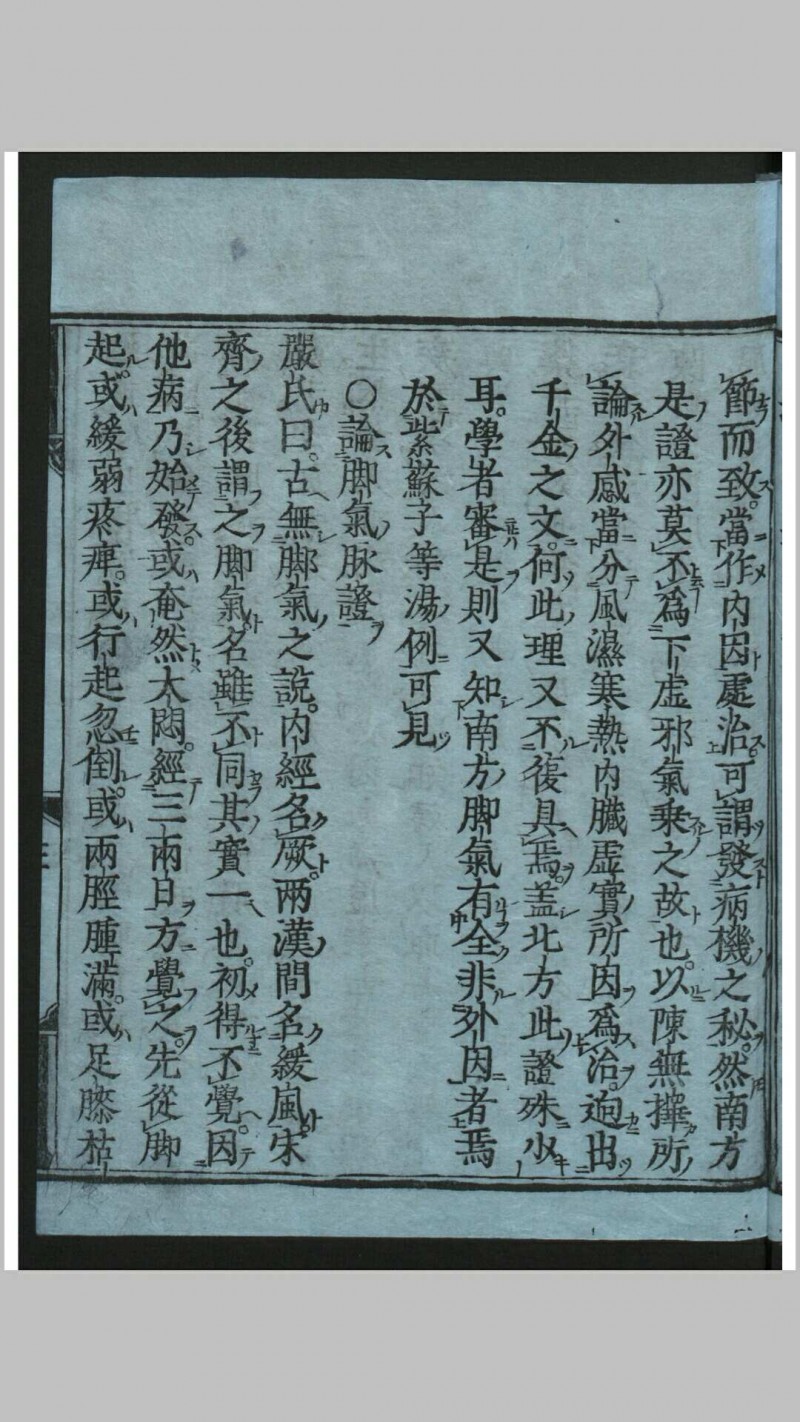 節而致當作内因處治可謂發病機之秘。然南方
是證亦莫不爲下虚邪氣乗之故也。以陳無擇所
論外感當分風濕寒熱内臓虚實所因爲治。逈出
千金之文。何此理又不復具焉。蓋北方此證殊少
耳。學者審是則又知南方脚氣有全非外因者焉
於紫蘇子等湯例可見
〇論脚氣脉證
嚴氏曰。古無脚氣之說。内經名厥。兩漢間名緩風。宋
齊之後謂之脚氣名雖不同其實一也。初得不覺。因
他病乃始發。或奄然大悶。經三兩日方覺之。先從脚
起。或緩弱疼痺。或行起忽倒。或兩脛腫滿。或足膝枯